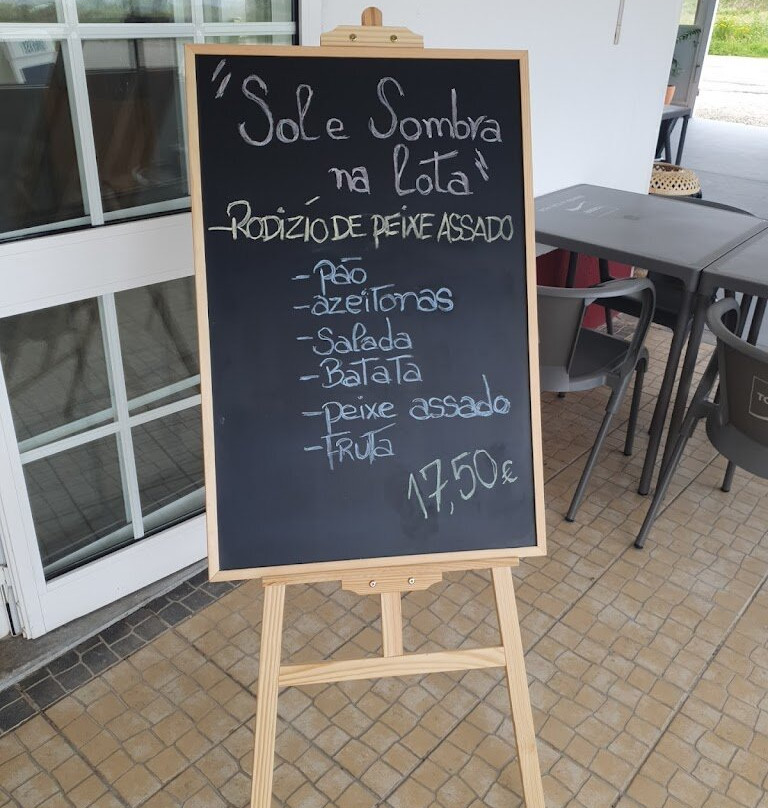 "Sol e Sombra
na lota"
-RODIZÍO DE PEIXE ASSADO
-Pão
-azeitonas
-Salada
-BATATA
-peixe assado
-FRUTA
17,50€